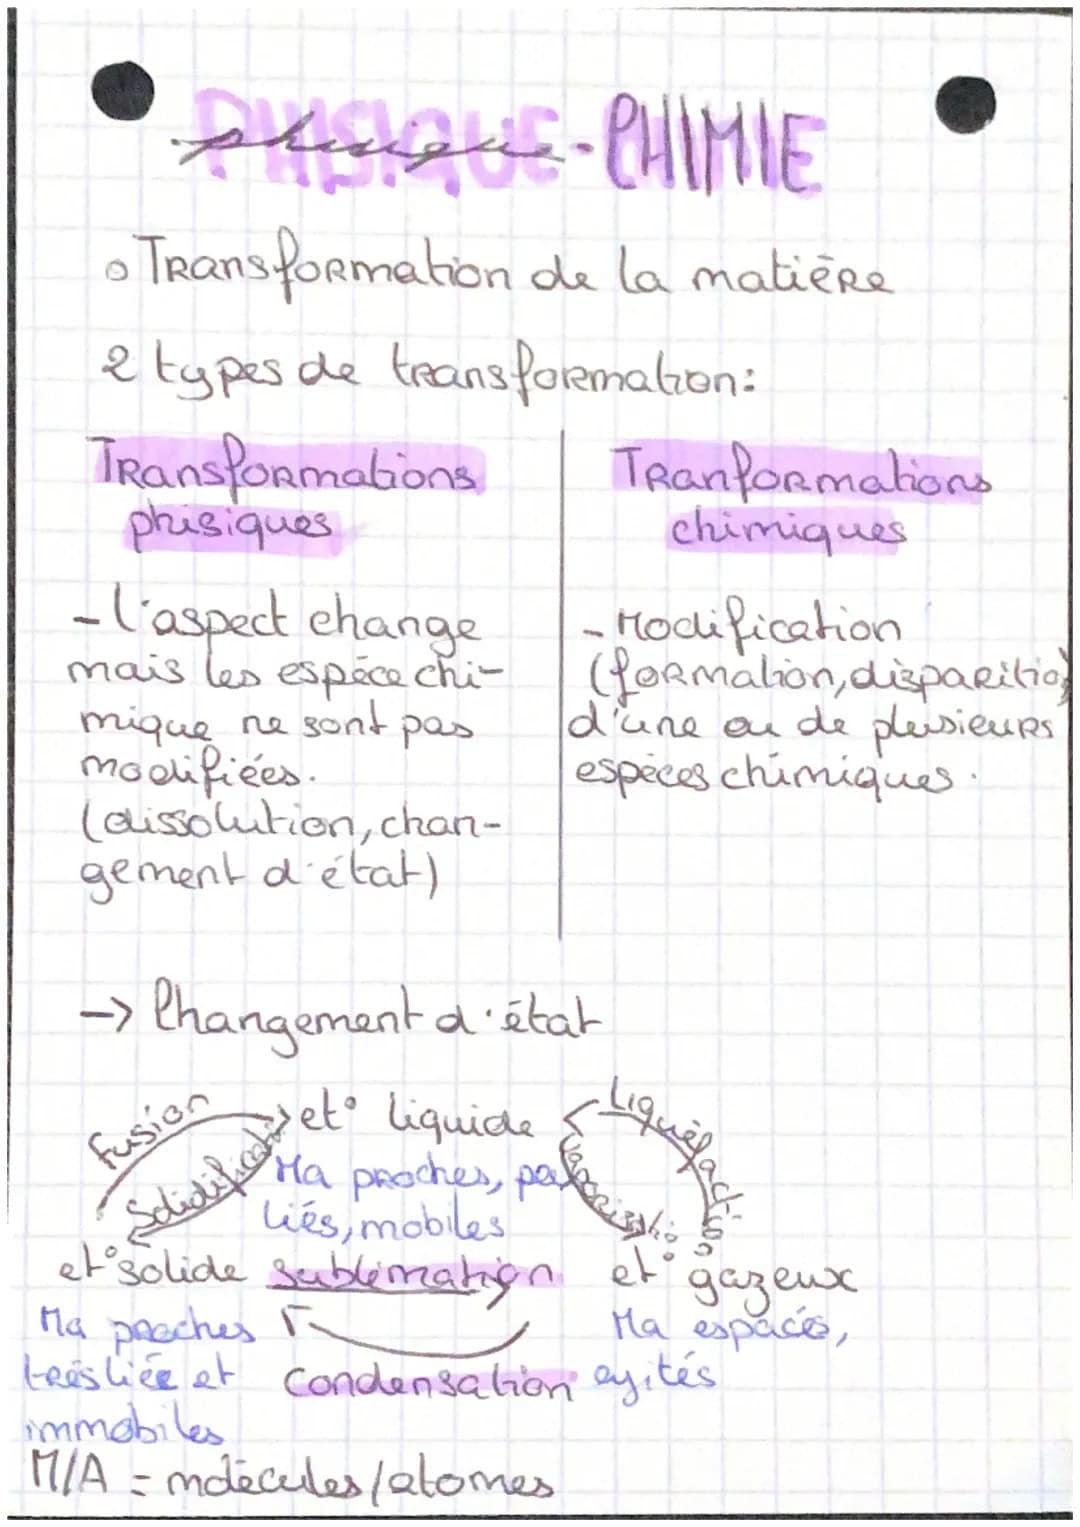 phisique-CHIMIE
o Transformation de la matière
2 types de transformation:
Transformations
phisiques
- l'aspect change
mais les espèce chi-
mique ne sont pas
modifiées.
(dissolution, chan-
gement d'état)
Tranformations
chimiques
- Modification
(formation, disparition)
d'une ou de plusieurs
espèces chimiques.
-> Changement d'état
Fusion
Solidification
et° liquide
Ma proches, peu
liés, mobiles
Liquéfaction
Vaporisation
et° solide
Ma proches
très liée et
immobiles
sublimation
Condensation
et° gazeux
Ma espacés,
agités
M/A = molécules/atomes